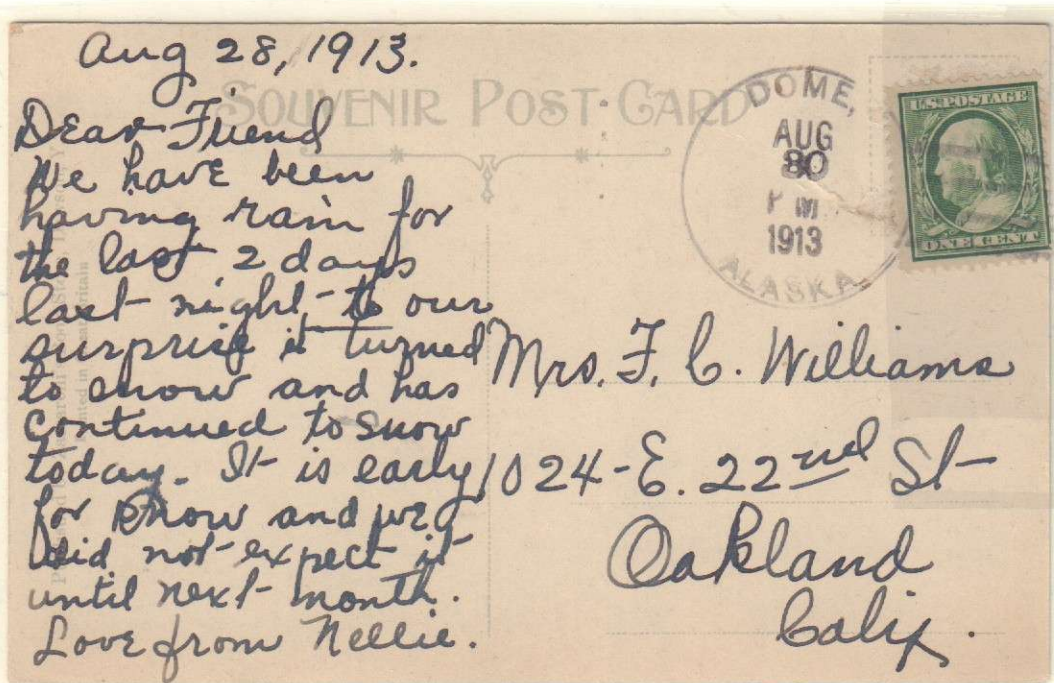 Aug 28, 1913.
SOUVENIR POST CARD
Dear Friend
We have been
having rain for
the last 2 days
last night to our
surprise it turned
to snow and has
continued to snow
today. It is early
for snow and we
did not expect it
until next month.
Love from Nellie.
DOME,
AUG
30
P M
1913
ALASKA
U.S. POSTAGE
ONE CENT
Mrs. F. C. Williams
1024 - E. 22nd St
Oakland
Calif.